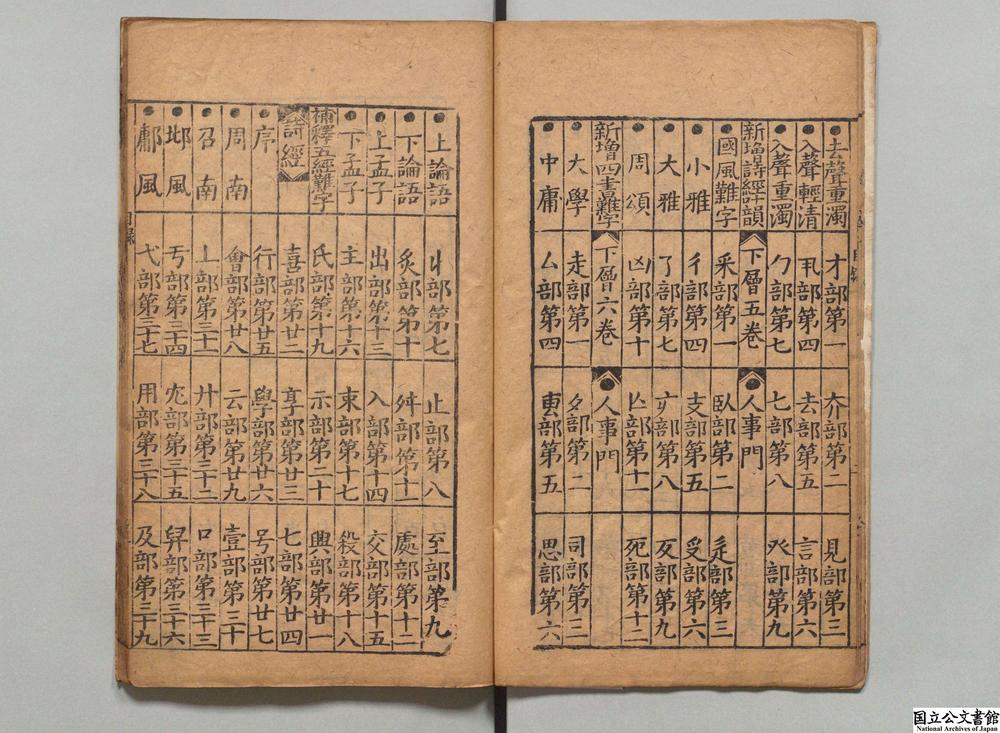 去聲重濁 才部第一 夰部第二 見部第三
入聲輕清 丮部第四 去部第五 言部第六
入聲重濁 勹部第七 七部第八 癶部第九
新增詩經叶韻 下層五卷 人事門
國風難字 釆部第一 臥部第二 辵部第三
小雅 彳部第四 支部第五 𠬪部第六
大雅 了部第七 部第八 歹部第九
周頌 凶部第十 部第十一 死部第十二
新增四書難字 下層六卷 人事門
大學 走部第一 部第二 司部第三
中庸 厶部第四 叀部第五 思部第六
上論語 丩部第七 止部第八 至部第九
下論語 炙部第十 舛部第十一 處部第十二
上孟子 出部第十三 入部第十四 交部第十五
下孟子 主部第十六 束部第十七 殺部第十八
補釋五經難字 氏部第十九 示部第二十 興部第廿一
詩經 喜部第廿二 享部第廿三 七部第廿四
序 行部第廿五 學部第廿六 号部第廿七
周南 會部第廿八 云部第廿九 壹部第三十
召南 丄部第三十一 廾部第三十二 口部第三十三
邶風 丂部第三十四 部第三十五 舁部第三十六
鄘風 弋部第三十七 用部第三十八 及部第三十九
目錄
国立公文書館
National Archives of Japan